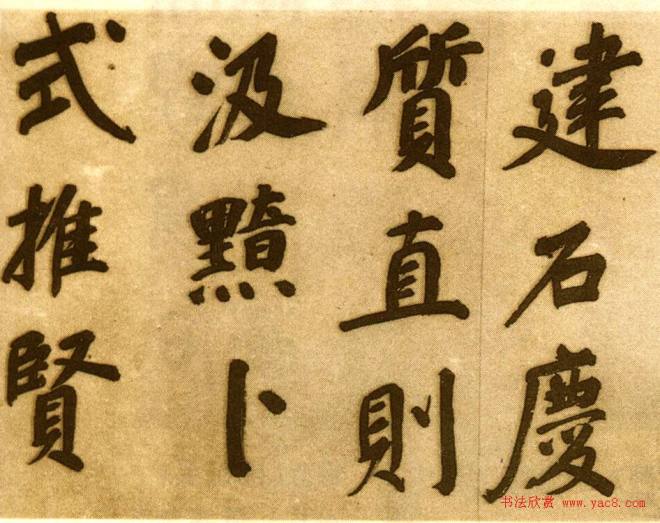 建石慶
質直則
汲黯卜
式推賢
书法欣赏 www.yac8.com